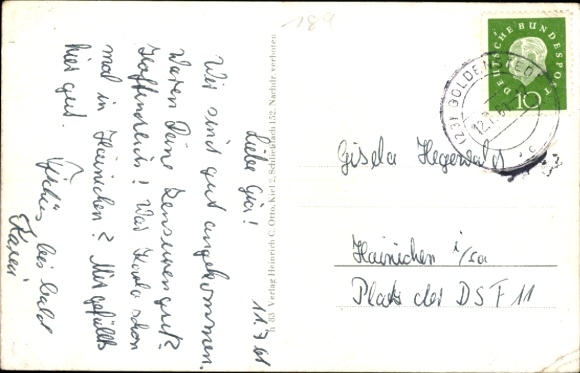 189
11.7.61
Liebe Gisi!
Wir sind gut angekommen.
Waren Deine Zensuren gut?
Hoffendlich! War Karola schon
mal in Hainichen? Mir gefällts
hier gut.
Tschüs bis bald
Karen
h 83 Verlag Heinrich C. Otto, Kiel 2, Schließfach 152. Nachdr. verboten
DEUTSCHE BUNDESPOST
10
(23) GOLDENSTEDT
12.7.61
Gisela Hegewald
Hainichen i/Sa
Platz der DSF 11